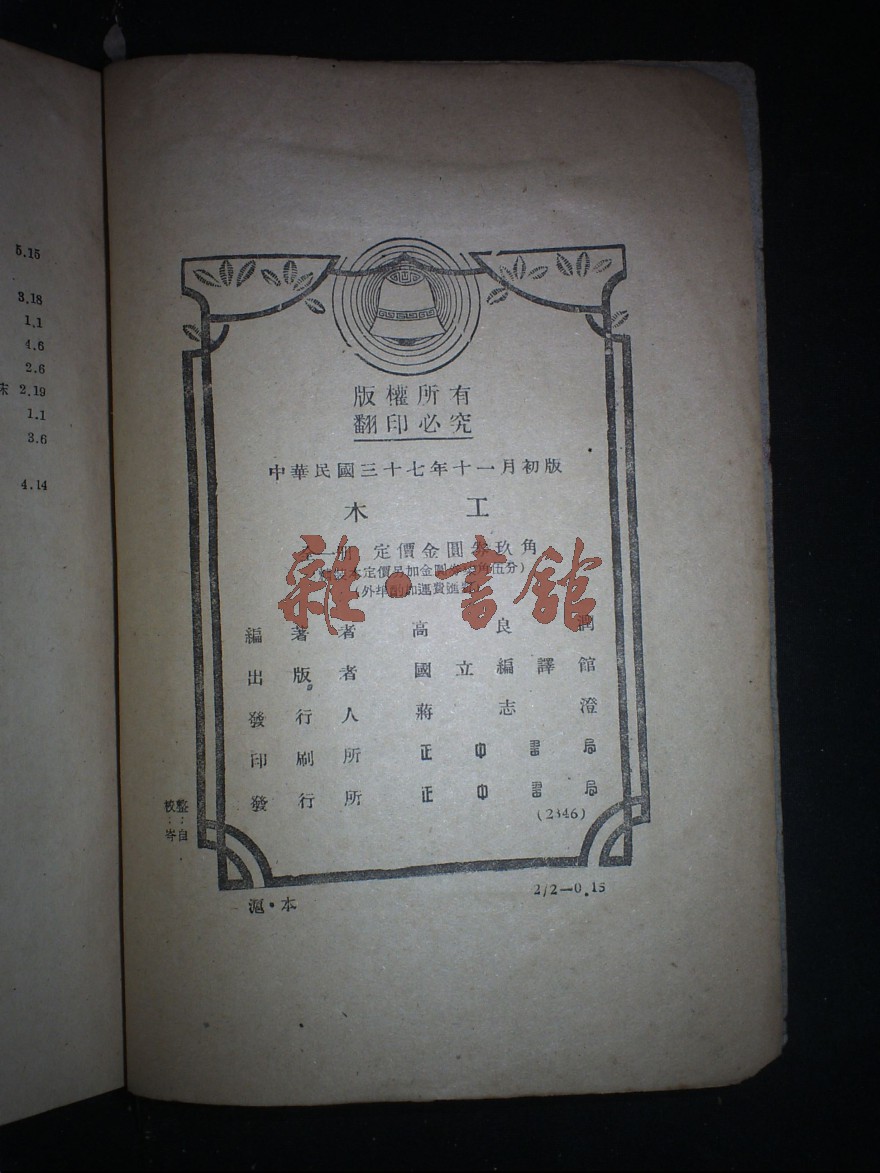 5.15
3.18
1.1
4.6
2.6
床 2.19
1.1
3.6
4.14
版權所有
翻印必究
中華民國三十七年十一月初版
木工
全一冊 定價金圓券玖角
本定價另加金圓券角伍分)
(外埠酌加運費匯費)
編著者 高良潤
出版者 國立編譯館
發行人 蔣志澄
印刷所 正中書局
發行所 正中書局
(2346)
整:自
校:岑
滬·本
2/2—0.15
雜·書館